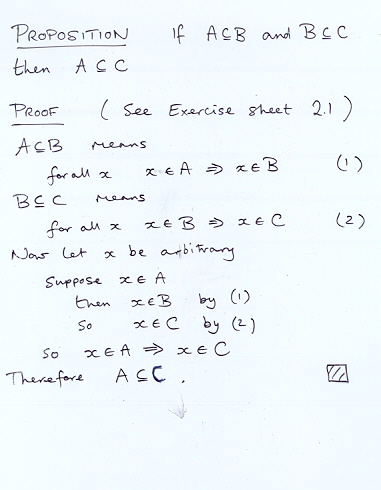 PROPOSITION If A⊆B and B⊆C
then A⊆C
PROOF (See Exercise sheet 2.1)
A⊆B means
for all x x∈A ⇒ x∈B (1)
B⊆C means
for all x x∈B ⇒ x∈C (2)
Now let x be arbitrary
Suppose x∈A
then x∈B by (1)
so x∈C by (2)
so x∈A ⇒ x∈C
Therefore A⊆C.